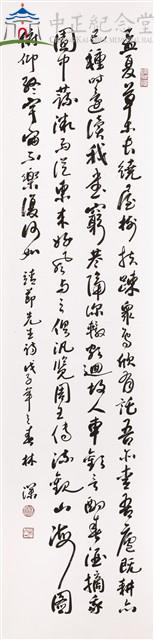 中正紀念堂
孟夏草木長繞屋樹扶疎眾鳥欣有託吾亦愛吾廬既耕亦
已種時還讀我書窮巷隔深轍頗迴故人車歡言酌春酒摘我
園中蔬微雨從東來好風與之俱汎覽周王傳流觀山海圖
俯仰終宇宙不樂復何如 靖節先生詩 戊子年之春 林